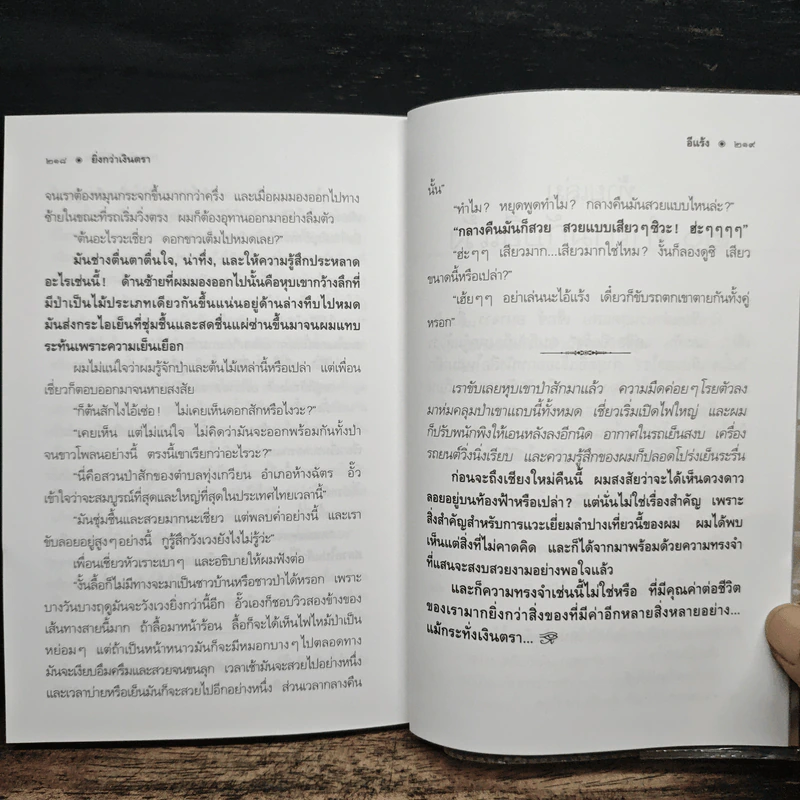 ๒๑๘ ◉ ยิ่งกว่าเงินตรา
จนเราต้องหมุนกระจกขึ้นมากกว่าครึ่ง และเมื่อผมมองออกไปทาง
ซ้ายในขณะที่รถเริ่มวิ่งตรง ผมก็ต้องอุทานออกมาอย่างลืมตัว
“ต้นอะไรวะเชี่ยว ดอกขาวเต็มไปหมดเลย?”
มันช่างตื่นตาตื่นใจ, น่าทึ่ง, และให้ความรู้สึกประหลาด
อะไรเช่นนี้! ด้านซ้ายที่ผมมองออกไปนั้นคือหุบเขากว้างลึกที่
มีป่าเป็นไม้ประเภทเดียวกันขึ้นแน่นอยู่ด้านล่างทึบไปหมด
มันส่งกระไอเย็นที่ชุ่มชื้นและสดชื่นแผ่ซ่านขึ้นมาจนผมแทบ
ระทันเพราะความเย็นเยือก
ผมไม่แน่ใจว่าผมรู้จักป่าและต้นไม้เหล่านี้หรือเปล่า แต่เพื่อน
เชี่ยวก็ตอบออกมาจนหายสงสัย
“ก็ต้นสักไงไอ้เซ่อ! ไม่เคยเห็นดอกสักหรือไงวะ?”
“เคยเห็น แต่ไม่แน่ใจ ไม่คิดว่ามันจะออกพร้อมกันทั้งป่า
จนขาวโพลนอย่างนี้ ตรงนี้เขาเรียกว่าอะไรวะ?”
“นี่คือสวนป่าสักของตำบลทุ่งเกวียน อำเภอห้างฉัตร อั๊ว
เข้าใจว่าจะสมบูรณ์ที่สุดและใหญ่ที่สุดในประเทศไทยเวลานี้”
“มันชุ่มชื้นและสวยมากนะเชี่ยว แต่พลบค่ำอย่างนี้ และเรา
ขับลอยอยู่สูงๆอย่างนี้ กูรู้สึกวังเวงยังไงไม่รู้ว่ะ”
เพื่อนเชี่ยวหัวเราะเบาๆ และอธิบายให้ผมฟังต่อ
“งั้นลื้อก็ไม่มีทางจะมาเป็นชาวบ้านหรือชาวป่าได้หรอก เพราะ
บางวันบางฤดูมันจะวังเวงยิ่งกว่านี้อีก อั๊วเองก็ชอบวิวสองข้างของ
เส้นทางสายนี้มาก ถ้าลื้อมาหน้าร้อน ลื้อก็จะได้เห็นไฟไหม้ป่าเป็น
หย่อมๆ แต่ถ้าเป็นหน้าหนาวมันก็จะมีหมอกบางๆไปตลอดทาง
มันจะเงียบอึมครึมและสวยจนขนลุก เวลาเช้ามันจะสวยไปอย่างหนึ่ง
และเวลาบ่ายหรือเย็นมันก็จะสวยไปอีกอย่างหนึ่ง ส่วนเวลากลางคืน
อีแร้ง ◉ ๒๑๙
นั้น”
“ทำไม? หยุดพูดทำไม? กลางคืนมันสวยแบบไหนล่ะ?”
“กลางคืนมันก็สวย สวยแบบเสียวๆซิวะ! ฮ่ะๆๆๆๆ”
“ฮ่ะๆๆ เสียวมาก...เสียวมากใช่ไหม? งั้นก็ลองดูซิ เสียว
ขนาดนี้หรือเปล่า?”
“เฮ้ยๆๆ อย่าเล่นนะไอ้แร้ง เดี๋ยวก็ขับรถตกเขาตายกันทั้งคู่
หรอก”
เราขับเลยหุบเขาป่าสักมาแล้ว ความมืดค่อยๆโรยตัวลง
มาห่มคลุมป่าเขาแถบนี้ทั้งหมด เชี่ยวเริ่มเปิดไฟใหญ่ และผม
ก็ปรับพนักพิงให้เอนหลังลงอีกนิด อากาศในรถเย็นสงบ เครื่อง
รถยนต์วิ่งนิ่งเรียบ และความรู้สึกของผมก็ปลอดโปร่งเย็นระรื่น
ก่อนจะถึงเชียงใหม่คืนนี้ ผมสงสัยว่าจะได้เห็นดวงดาว
ลอยอยู่บนท้องฟ้าหรือเปล่า? แต่นั่นไม่ใช่เรื่องสำคัญ เพราะ
สิ่งสำคัญสำหรับการแวะเยี่ยมลำปางเที่ยวนี้ของผม ผมได้พบ
เห็นแต่สิ่งที่ไม่คาดคิด และก็ได้จากมาพร้อมด้วยความทรงจำ
ที่แสนจะสงบสวยงามอย่างพอใจแล้ว
และก็ความทรงจำเช่นนี้ไม่ใช่หรือ ที่มีคุณค่าต่อชีวิต
ของเรามากยิ่งกว่าสิ่งของที่มีค่าอีกหลายสิ่งหลายอย่าง...
แม้กระทั่งเงินตรา...